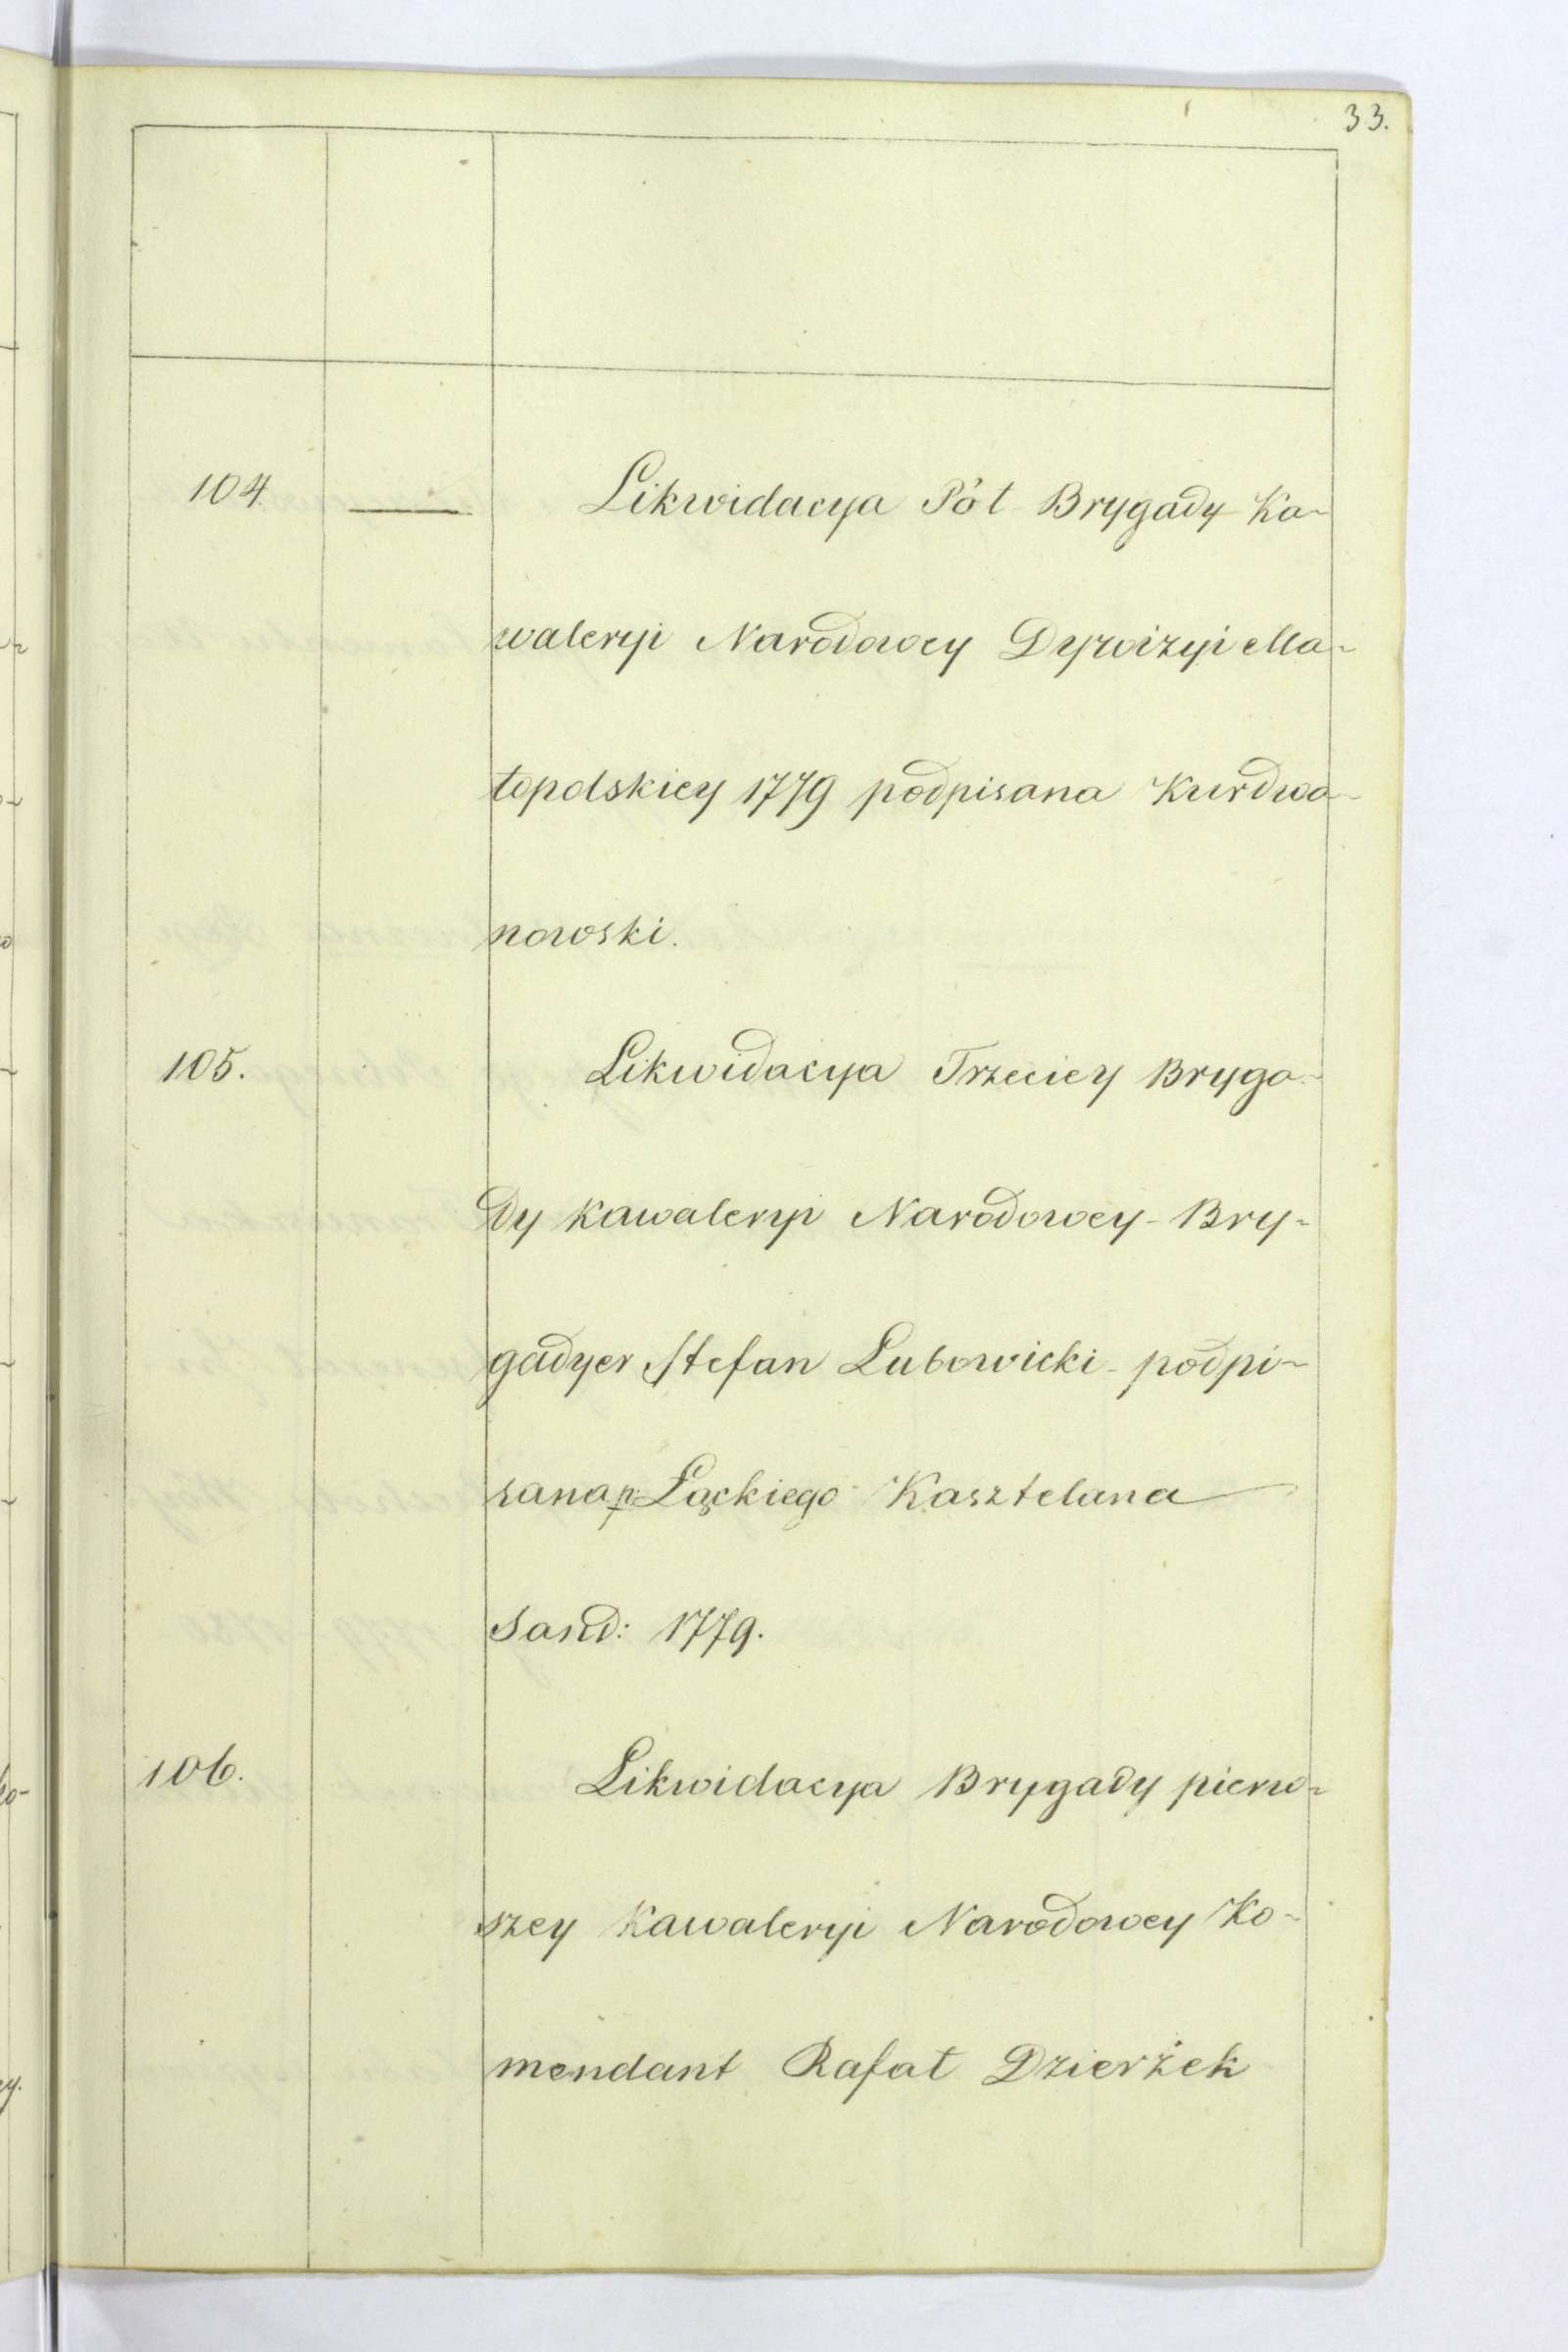 33.
104. — Likwidacya Pół Brygady Ka-
waleryi Narodowey Dywizyi Ma-
łopolskiey 1779 podpisana Kurdwa-
nowski.
105. Likwidacya Trzeciey Bryga-
dy Kawaleryi Narodowey - Bry-
gadyer Stefan Lubowicki - podpi-
sana p: Łąckiego Kasztelana
Sand: 1779.
106. Likwidacya Brygady pierw-
szey Kawaleryi Narodowey Ko-
mendant Rafał Dzierżek